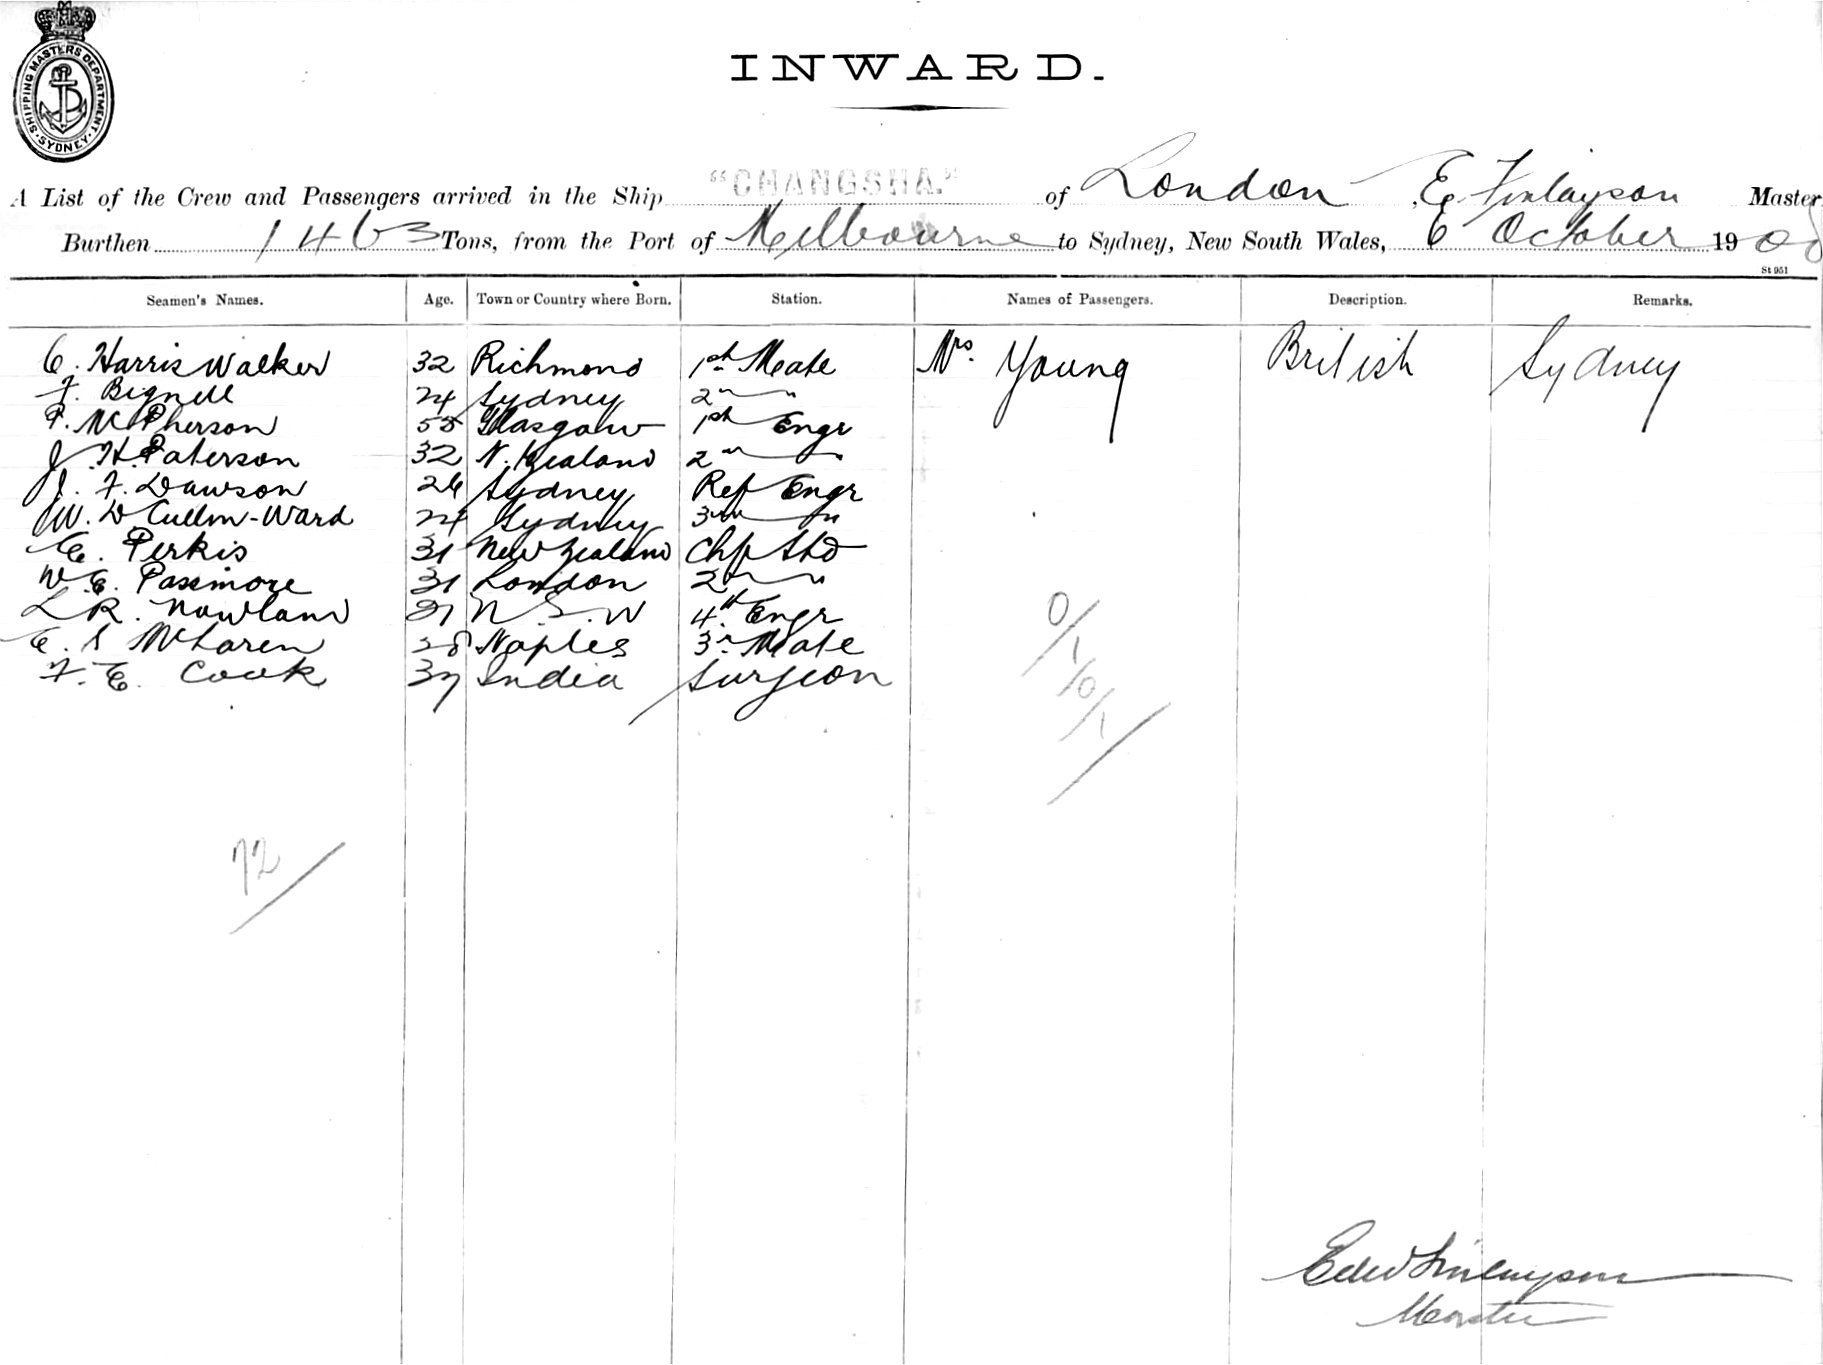 SHIPPING MASTERS DEPARTMENT · SYDNEY ·
INWARD.
A List of the Crew and Passengers arrived in the Ship "CHANGSHA." of London, E. Finlayson Master
Burthen 1463 Tons, from the Port of Melbourne to Sydney, New South Wales, 6 October 1908
St 951
Seamen's Names. Age. Town or Country where Born. Station. Names of Passengers. Description. Remarks.
C. Harris Walker 32 Richmond 1st Mate Mrs. Young British Sydney
F. Bignell 24 Sydney 2nd "
P. McPherson 55 Glasgow 1st Engr
J. H. Paterson 32 N. Zealand 2nd "
J. F. Dawson 26 Sydney Ref Engr
W. D Cullen-Ward 24 Sydney 3rd "
E. Perkis 31 New Zealand Chf Std
W. E. Passmore 31 London 2nd "
L R. Nowland 21 N.S.W 4th Engr
E. S McLaren 28 Naples 3rd Mate
F. E. Cook 37 India Surgeon
0/1/0/1/
72
Edw Finlayson
Master